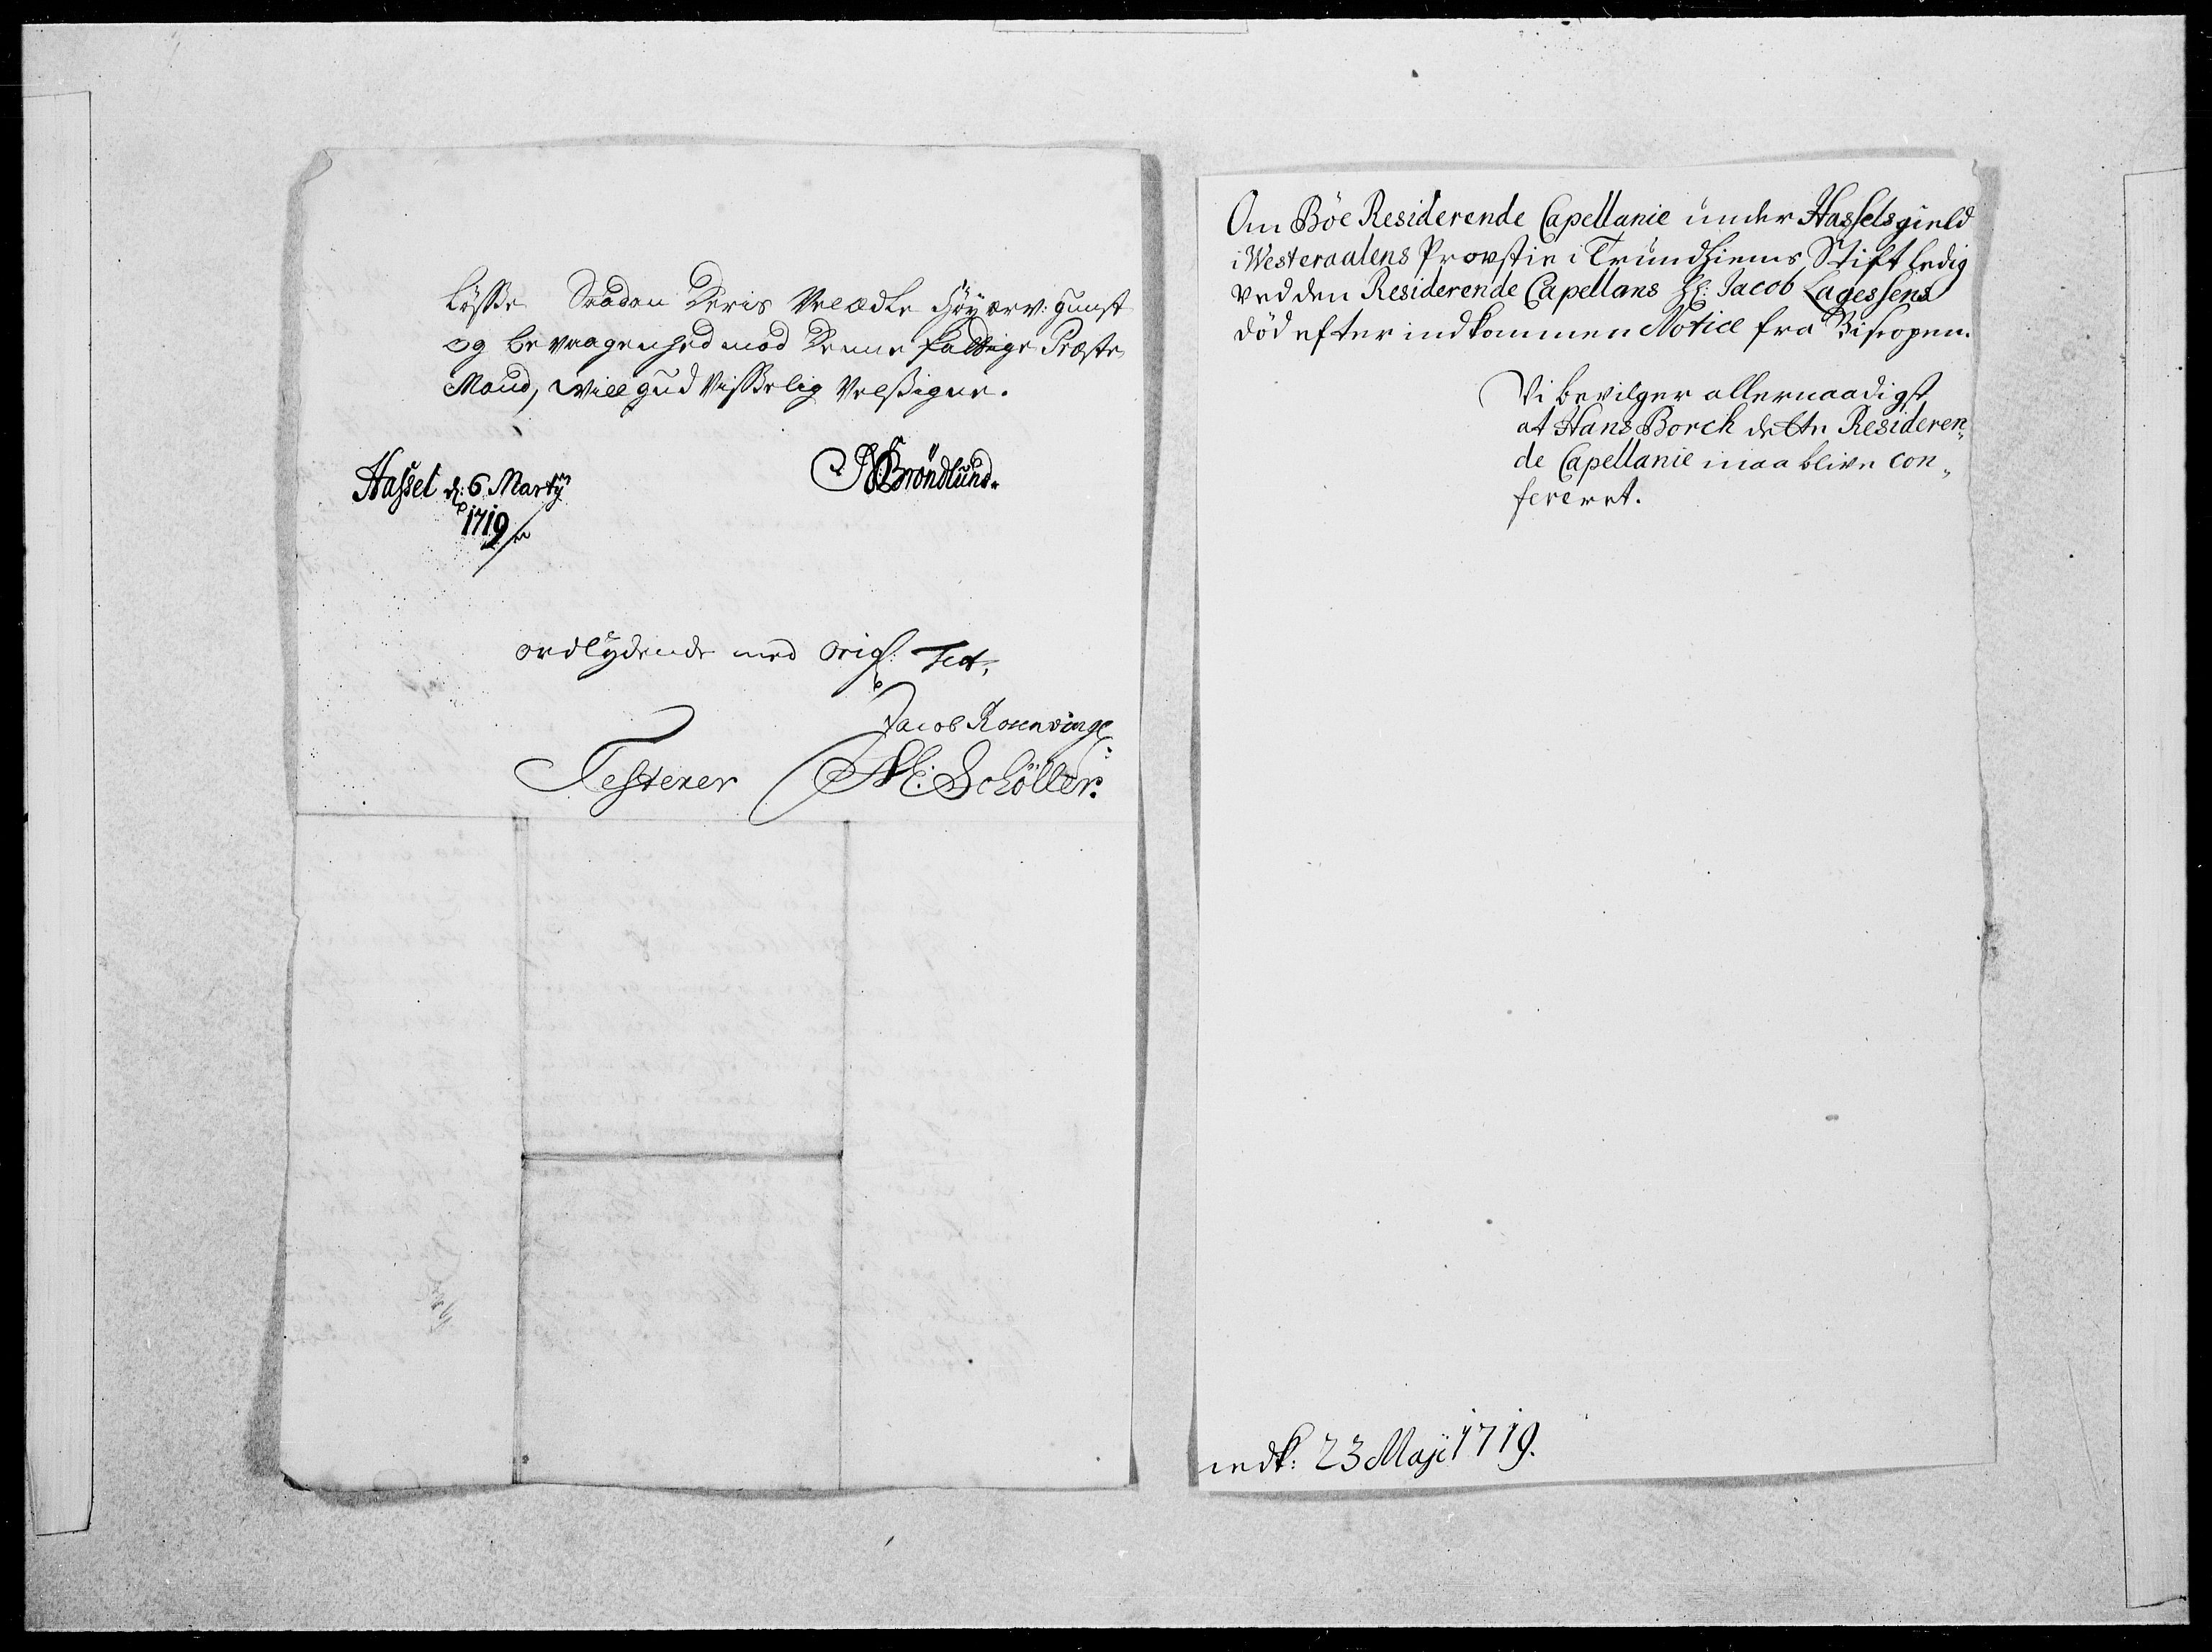 løsse Saadan Deris Velædle Høyærv: gunst
og bevaagenhed mod Denne fattige Præste
Mand, will gud Visselig Velsigne.
Hassel d: 6 Martÿ
1719
Brøndlund.
ordlydende med orig: Test,
Jacob Rosenvinge
Testerer M: Schøller:
Om Böe Residerende Capellanie under Hassels gield
i Westeraalens Provstie i Trundhiems Stift ledig
ved den Residerende Capellans Hr: Jacob Lagessens
död efter indkommen Notice fra Biscopen.
Vi bevilger allernaadigst
at Hans Borch dette Resideren„
de Capellanie maa blive con„
fereret.
indk: 23 Maji 1719.